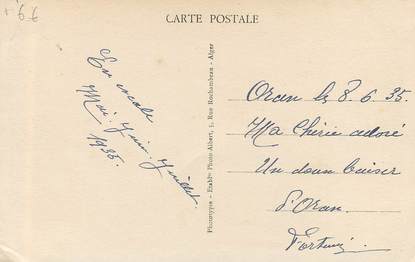 6€
CARTE POSTALE
En escale
Mai. Juin. Juillet.
1935.
Phototypie - Etabts Photo-Albert, 3, Rue Rochambeau - Alger
Oran le 8.6.35.
Ma Chérie adoré
Un doux baiser
d'Oran.